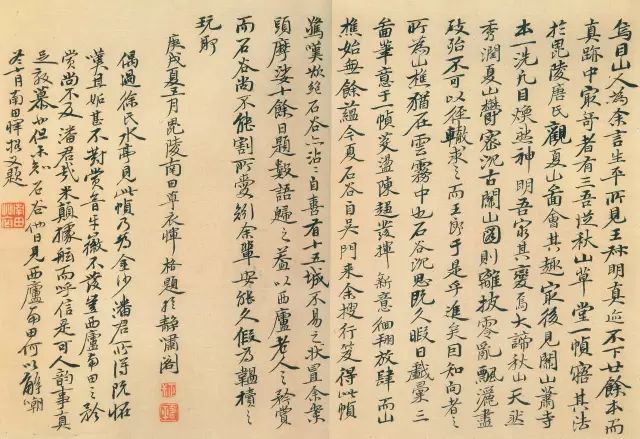 烏目山人為余言生平所見王叔明真跡不下廿餘本而
真跡中最奇者有三吾從秋山草堂一幀寤其法
於毘陵唐氏觀夏山啚會其趣最後見關山蕭寺
本一洗凡目煥然神明吾窮其變焉大諦秋山天然
秀潤夏山欝密沉古關山圖則離披零亂飄灑盡
致殆不可以徑轍求之而王郎于是乎進矣因知向者之
所為山樵猶在雲霧中也石谷沉思既久暇日戲彙三
啚筆意于一幀滌盪陳趨發揮新意徊翔放肆而山
樵始無餘蘊今夏石谷自吳門來余搜行笈得此幀
驚嘆欲絕石谷亦沾沾自喜有十五城不易之狀置余案
頭摩娑十餘日題數語歸之蓋以西廬老人之矜賞
而石谷尚不能割所愛矧余輩安能久假為韞櫝之
玩耶
庚戌夏五月毘陵南田草衣惲格題於靜嘯閣
偶過徐氏水亭見此幀乃為金沙潘君所得既怪
嘆且妬甚不對賞音牙徽不發豈西廬南田之矜
賞尚不及潘君哉米顛據舷而呼信是可人韻事真
足效慕也但未知石谷他日見西廬南田何以解嘲
冬十月南田惲格又題